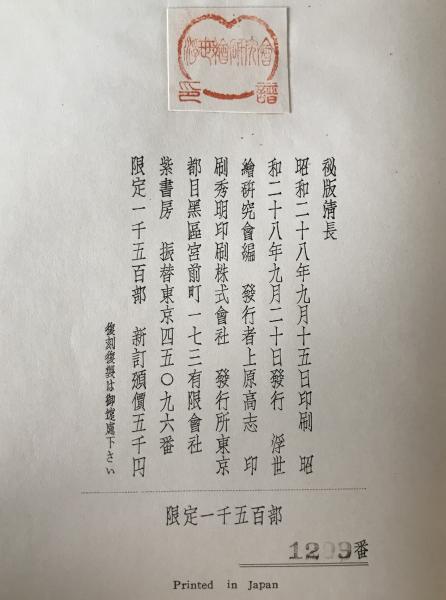 浮世繪研究會
印譜
秘版清長
昭和二十八年九月十五日印刷 昭
和二十八年九月二十日發行 浮世
繪研究會編 發行者上原高志 印
刷秀明印刷株式會社 發行所東京
都目黑區宮前町一七三有限會社
紫書房 振替東京四五〇九六番
限定一千五百部 新訂頒價五千円
復刻複製は御遠慮下さい
限定一千五百部
1293番
Printed in Japan